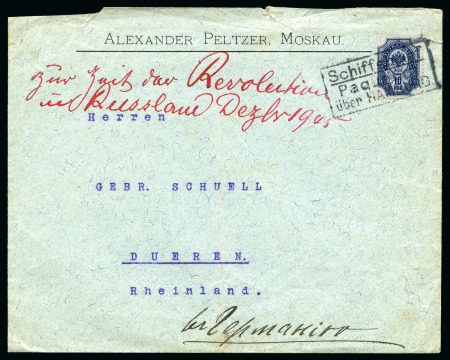 ALEXANDER PELTZER, MOSKAU.
zur Zeit der Revolution
in Russland Dezbr 1905
Schiff
Pac
über HA G.
10
Herren
GEBR. SCHUELL
DUEREN.
Rheinland.
въ Германiю